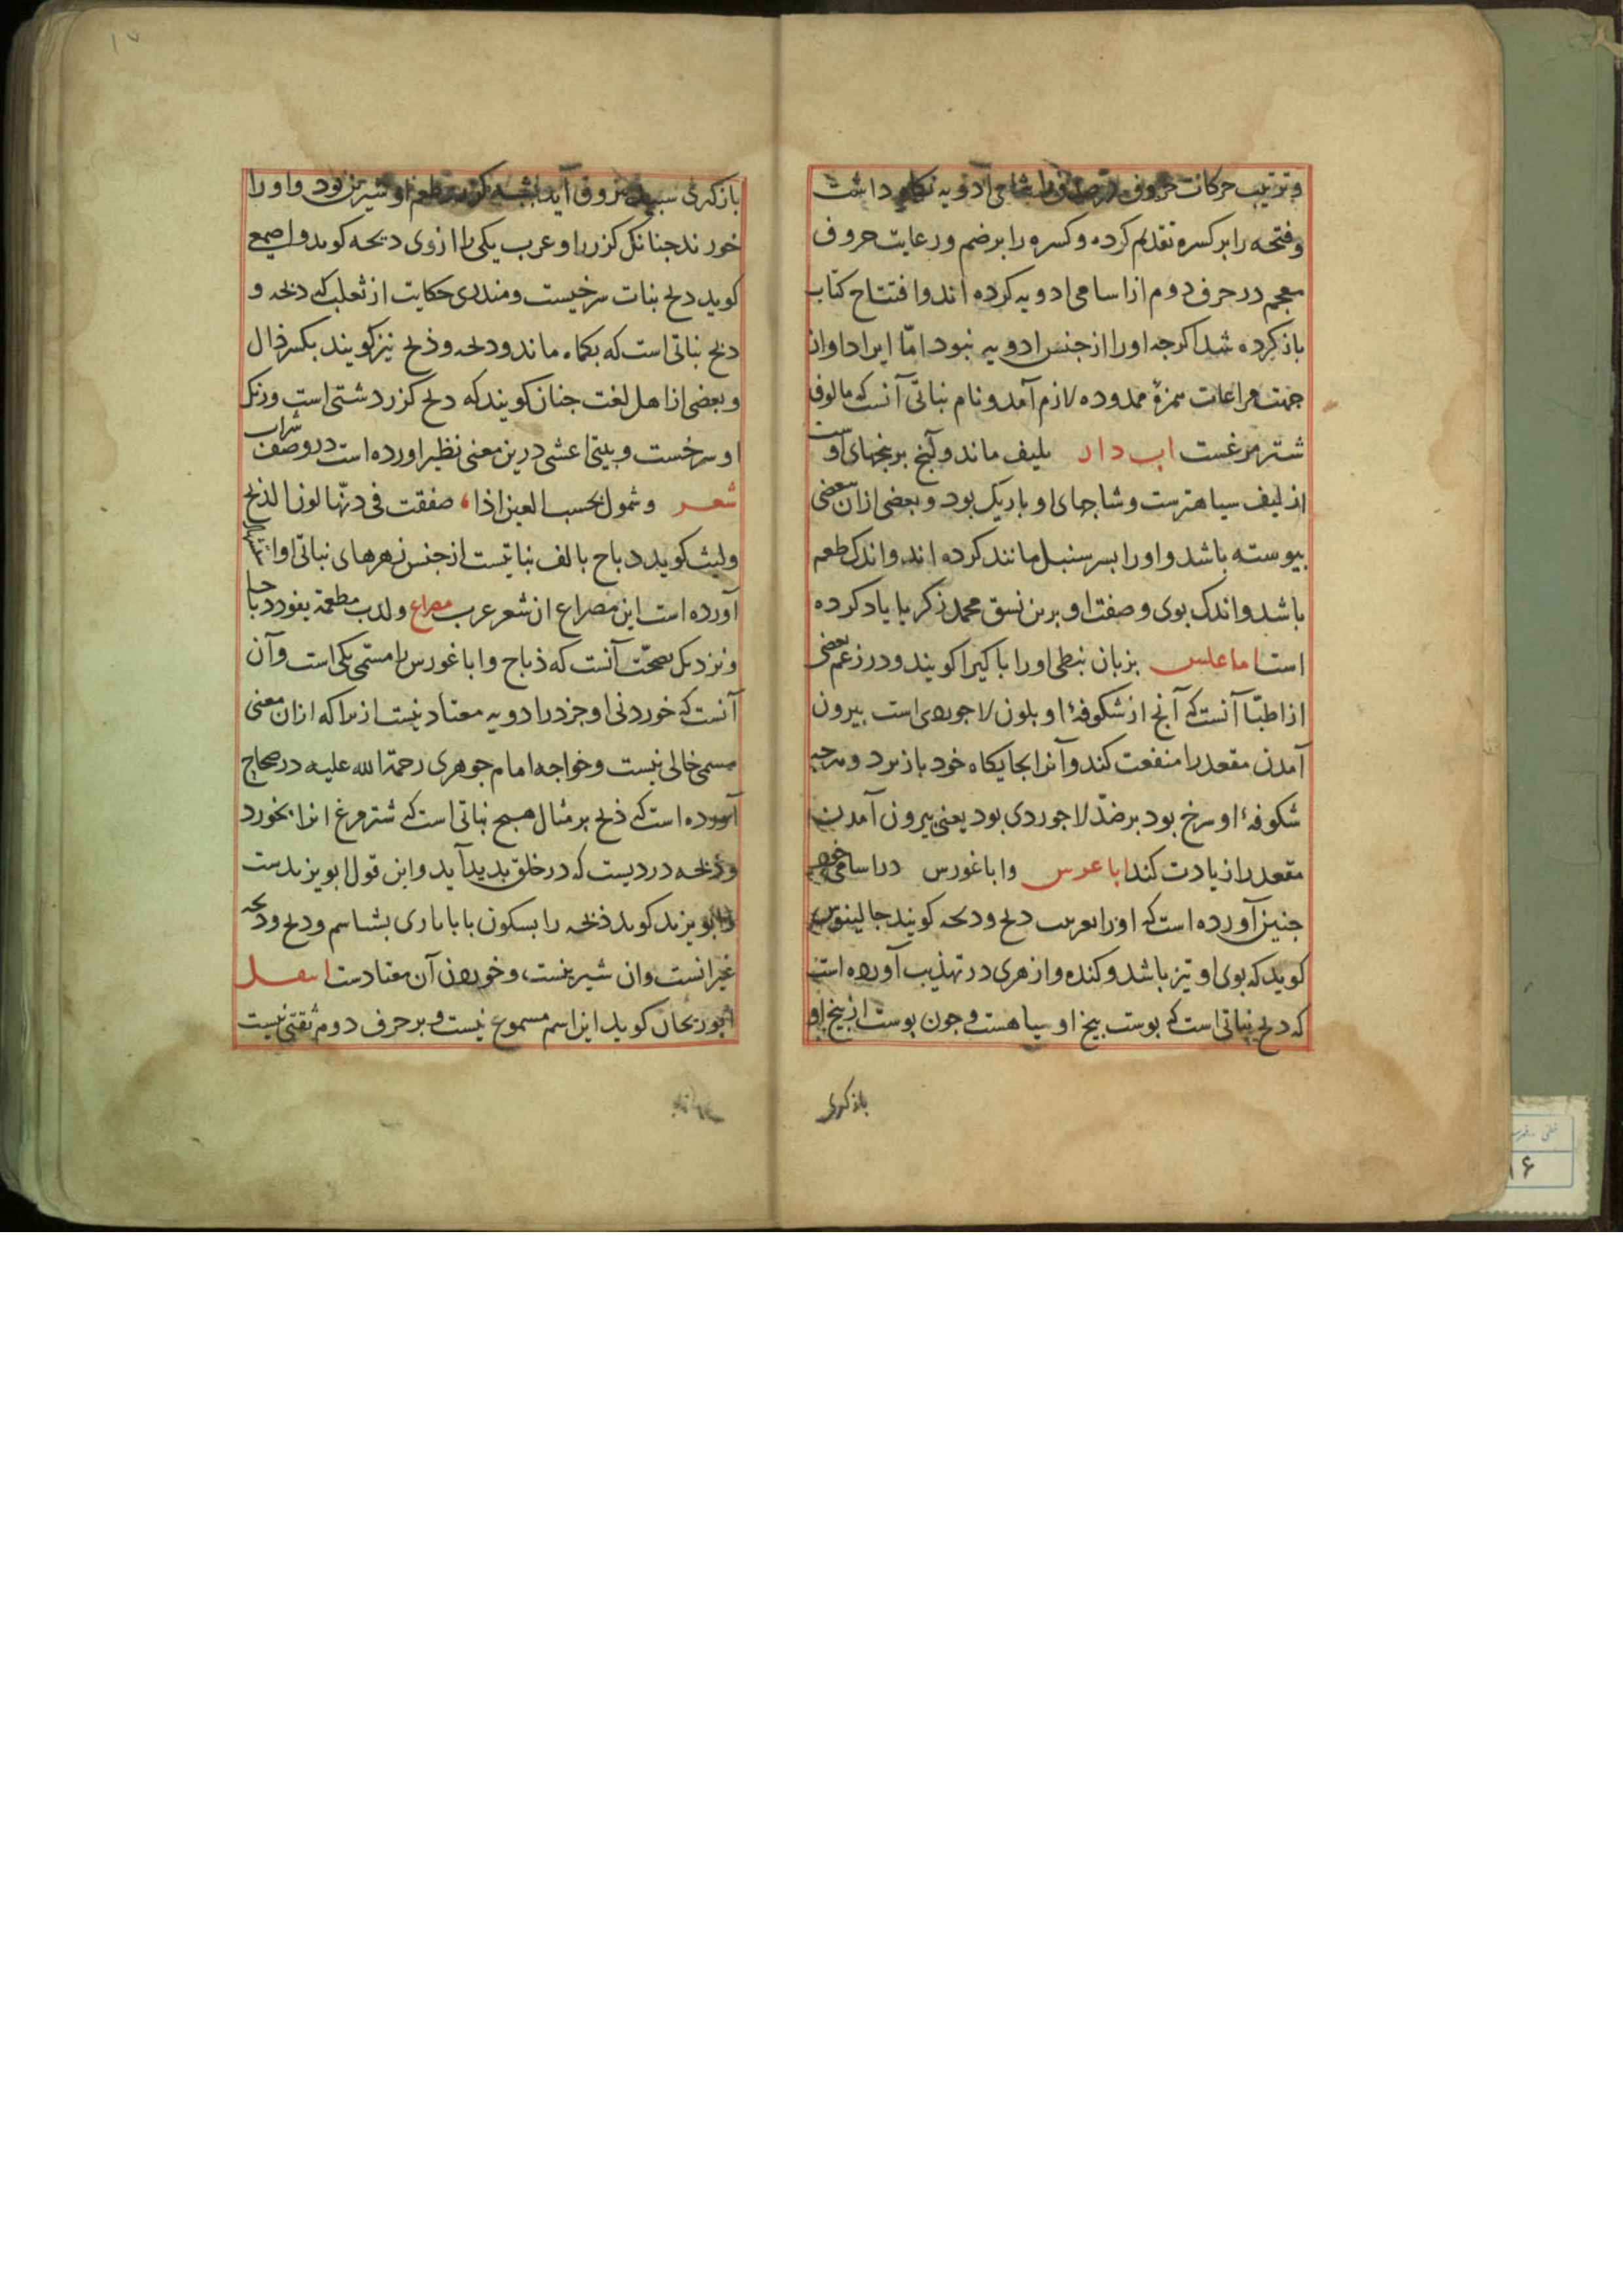 وترتیب حرکات حروف در اسامی ادویه نکاه داشت
وفتحه را بر کسره تقدیم کرده وکسره را بر ضم ورعایت حروف
معجم در حرف دوم از اسامی ادویه کرده اند وافتتاح کتاب
باذ کرده شد اکرجه اورا از جنس ادویه نبود امّا ایراد اوان
جهت مراعات همزهٔ ممدوده لازم آمد ونام نباتی آنست که مالوف
شتر مرغست اب دار بلیف ماند وآنج بر بنجهای اوست
از لیف سیاهترست وشاجهای او باریک بود وبعضی ازان ببعضی
بیوسته باشد واورا بسر سنبل مانند کرده اند واندک طعم
باشد واندک بوی وصفت او برین نسق محمد زکریا یاد کرده
است اماعلس بزبان نبطی اورا باکیرا کویند ودر زعم بعضی
از اطبّا آنست که آنج از شکوفهٔ او بلون لاجوردی است بیرون
آمدن مقعد را منفعت کند وآنرا بجایکاه خود باز برد وهرجه
شکوفهٔ او سرخ بود بر ضدّ لاجوردی بود یعنی بیرون آمدن
مقعد را زیادت کند اباعرس واباغورس در اسامی
جنین آورده است که اورا بعرب دلح ودلحه کویند جالینوس
کوید که بوی او تیز باشد وکنده وازهری در تهذیب آورده است
که دلح نباتی است که بوست بیخ او سیاهست وجون بوست از بیخ او
بازکری
باز کری سبید بیرون آید طعم او شیرین بود واورا
خورند جنانک کزر را وعرب یکی را ازوی دبحه کوید واصمعی
کوید دلح بنات سرخیست ومنذری حکایت از ثعلب که ذبحه و
ذبح نباتی است که بکماه ماند ودلحه وذبح نیز کویند بکسر ذال
وبعضی از اهل لغت جنان کویند که دلح کزر دشتی است ورنک
او سرخست وبیتی اعشی درین معنی نظیر اورده است در وصف شراب
شعر وشمول تحسب العین اذا صفقت فی دنّها لون الذبح
ولیث کوید دباح بالف نباتیست از جنس زهرهای نباتی
آورده است این مصراع از شعر عرب مصراع ولدب مطعمة بفورد دباحا
ونزدیک بصحّت آنست که ذباح واباغورس را مسمّی یکی است وآن
آنست که خوردنی او جز در ادویه معتاد نیست ازیرا که ازان معنی
مسمی خالی نیست وخواجه امام جوهری رحمة الله علیه در صحاح
آورده است که ذبح بر مثال هبح نباتی است که شتر مرغ انرا بخورد
وذبحه دردیست که در خلق بدید آید واین قول ابو یزیدست
وابو یزید کوید ذبحه را بسکون با باباری بشناسم ودلح ودلحه
غیر آنست وان شیرینست وخوردن آن معتادست اسفـل
ابو ریحان کوید این اسم مسموع نیست وبر حرف دوم ثقتی نیست
۱۷
۱۶